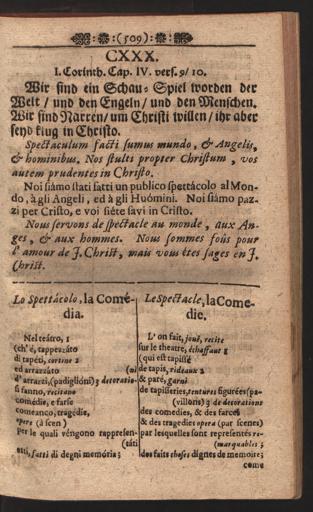 (509)
CXXX.
I. Corinth. Cap. IV. vers. 9/ 10.
Wir sind ein Schau-Spiel worden der
Welt / und den Engeln / und den Menschen.
Wir sind Narren / um Christi willen / ihr aber
seyd klug in Christo.
Spectaculum facti sumus mundo, & Angelis,
& hominibus. Nos stulti propter Christum, vos
autem prudentes in Christo.
Noi siámo stati fatti un publico spettácolo al Mon-
do, à gli Angeli, ed à gli Huómini. Noi siámo paz-
zi per Cristo, e voi siéte savi in Cristo.
Nous servons de spectacle au monde, aux An-
ges, & aux hommes. Nous sommes foûs pour
l'amour de J. Christ, mais vous êtes sages en J.
Christ.
Lo Spettácolo, la Comé-
dia.
Nel teátro, 1
(ch'é, tapprezzáto
di tapéti, cortine 2
ed arrazzáto (ni
d'arrazzi, (padiglióni) 3 decoratio-
si fanno, recitano
comédie, e farse
comeanco, tragédie,
opere (à scen)
per le quali véngono rappresen-
(táti
atti, fatti di degni memória;
Le Spectacle, la Come-
die.
L'on fait, joué, recite
sur le theatre, échaffaut 1
(qui est tapissé
de tapis, rideaux 2
& paré, garni
de tapisseries, tentures figurées (pa-
(villons) 3 de decorations
des comedies, & des farces
& des tragedies opera (par scenes)
par lesquelles sont representés re-
(marquables;
des faits choses dignes de memoire;
come